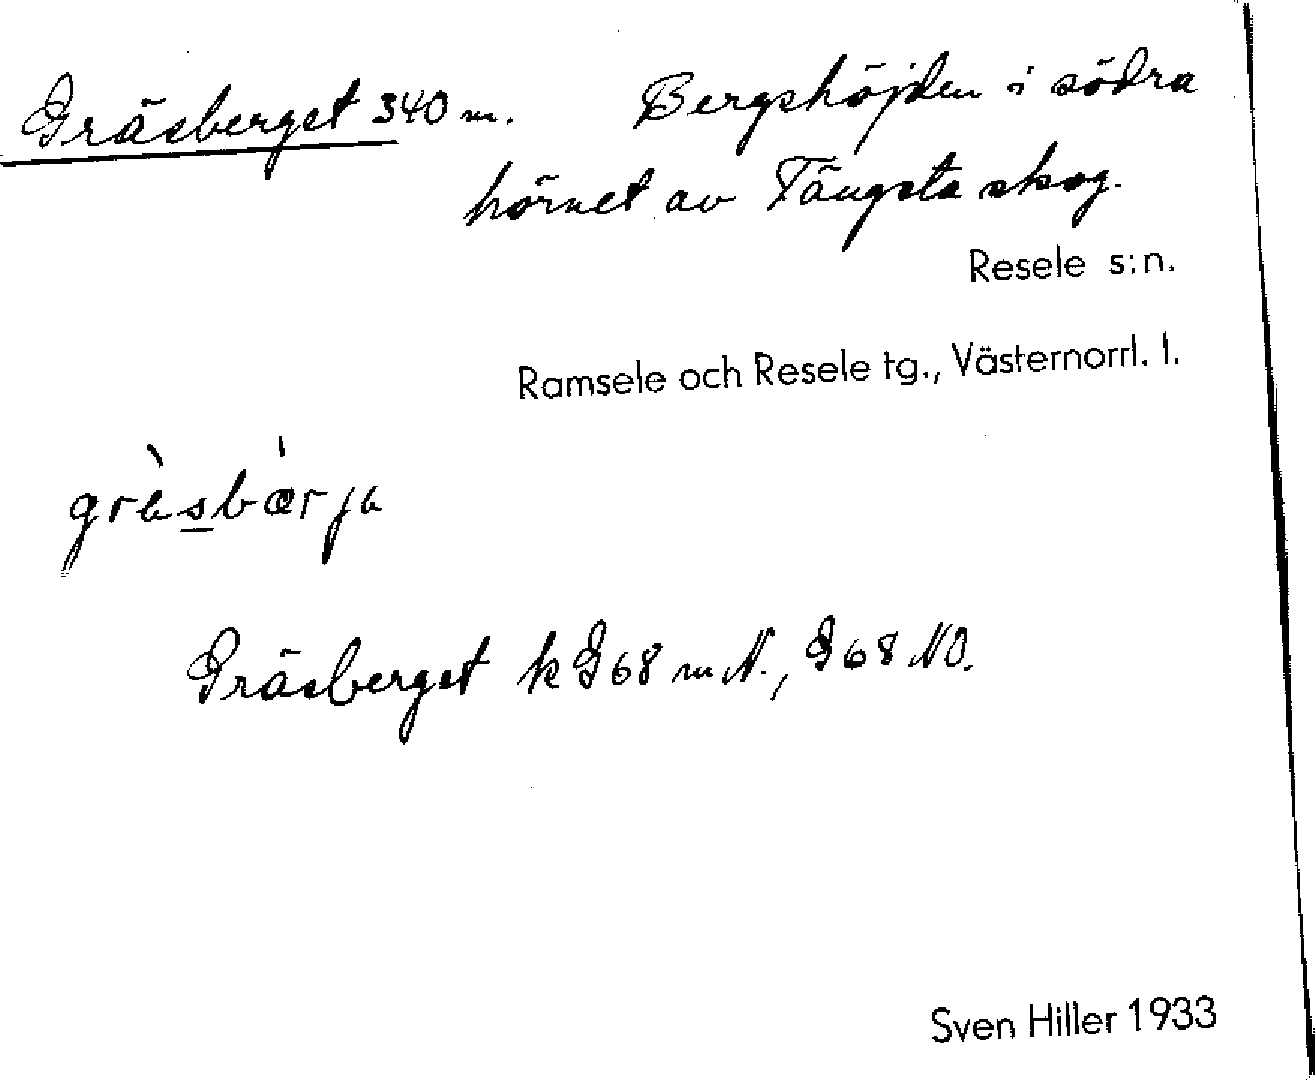 Gräsberget 340 m. Bergshöjden i södra
hörnet av Tängsta skog.
Resele s:n.
Ramsele och Resele tg., Västernorrl. l.
Gräsberget k G68 m N., G68 NO.
Sven Hiller 1933